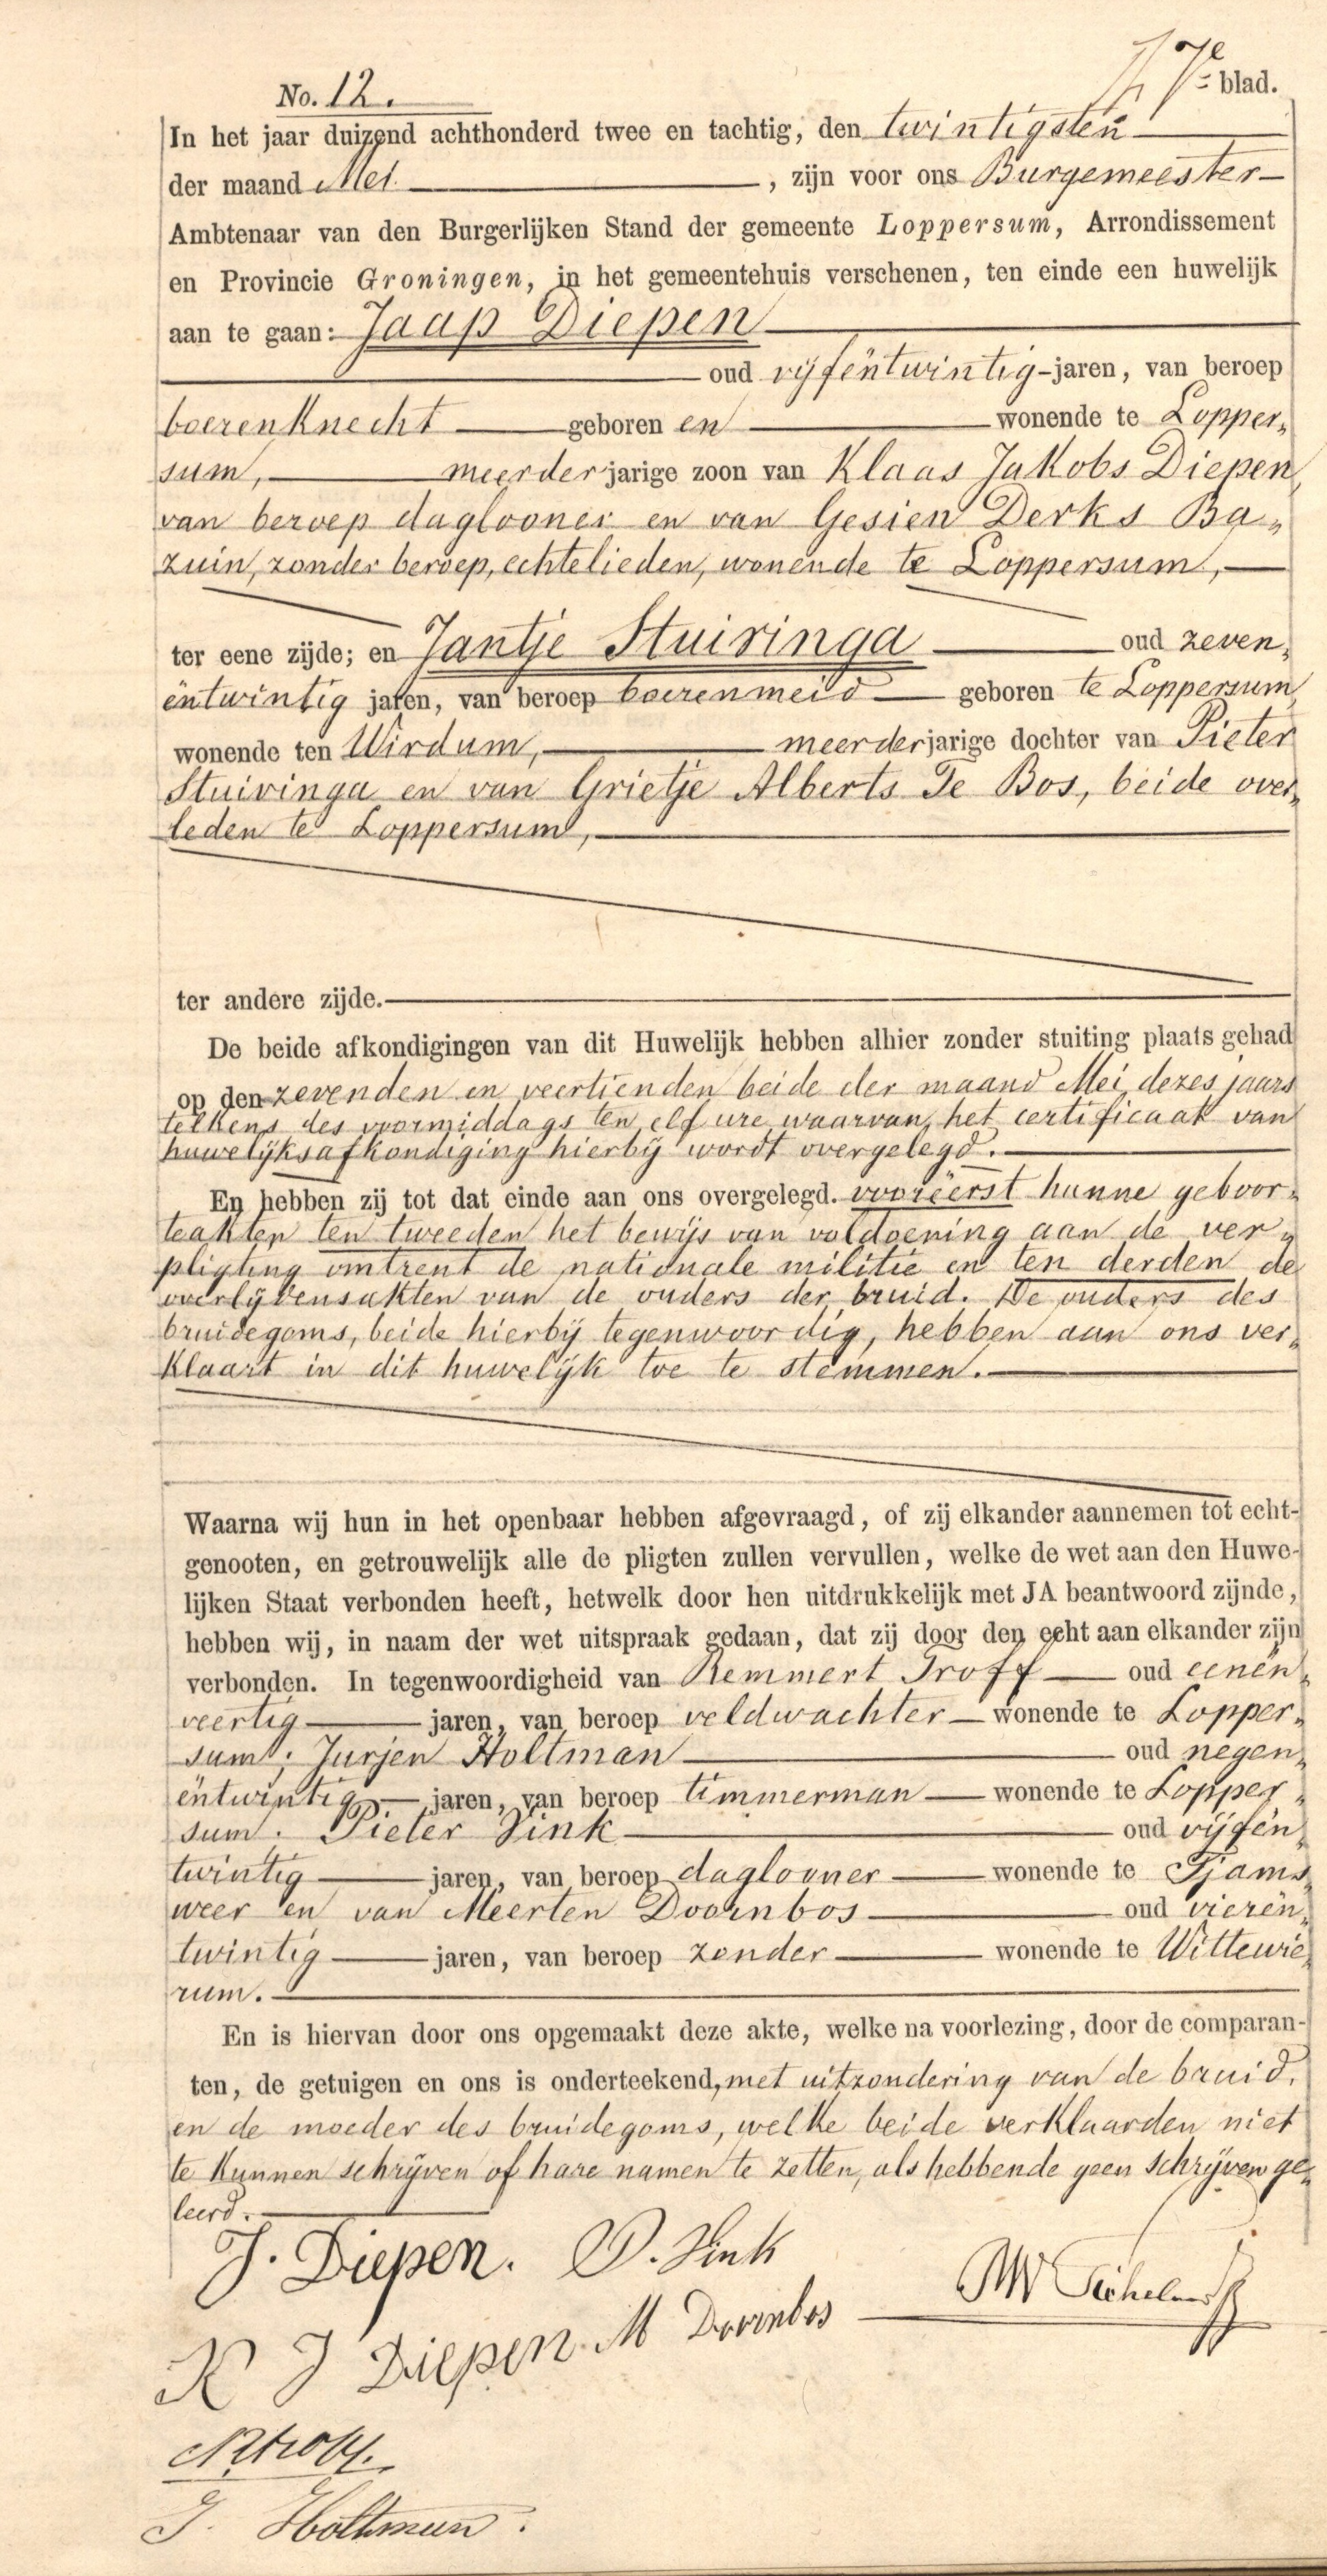 7e blad.
No. 12.
In het jaar duizend achthonderd twee en tachtig, den twintigsten
der maand Mei, zijn voor ons Burgemeester
Ambtenaar van den Burgerlijken Stand der gemeente Loppersum, Arrondissement
en Provincie Groningen, in het gemeentehuis verschenen, ten einde een huwelijk
aan te gaan: Jaap Diepen
oud vijfentwintig jaren, van beroep
boerenknecht geboren en wonende te Lopper„
sum, meerderjarige zoon van Klaas Jakobs Diepen
van beroep daglooner en van Gesien Derks Ba„
zuin, zonder beroep, echtelieden, wonende te Loppersum,
ter eene zijde; en Jantje Stuiringa oud zeven„
ëntwintig jaren, van beroep boerenmeid geboren te Loppersum
wonende ten Wirdum, meerderjarige dochter van Pieter
Stuiringa en van Grietje Alberts Te Bos, beide over„
leden te Loppersum,
ter andere zijde.
De beide afkondigingen van dit Huwelijk hebben alhier zonder stuiting plaats gehad
op den zevenden en veertienden beide der maand Mei dezes jaars
telkens des voormiddags ten elf ure waarvan het certificaat van
huwelijksafkondiging hierbij wordt overgelegd.
En hebben zij tot dat einde aan ons overgelegd. vooreerst hunne geboor„
teakten ten tweeden het bewijs van voldoening aan de ver„
pligting omtrent de nationale militie en ten derden de
overlijdensakten van de ouders der bruid. De ouders des
bruidegoms, beide hierbij tegenwoordig, hebben aan ons ver„
klaart in dit huwelijk toe te stemmen.
Waarna wij hun in het openbaar hebben afgevraagd, of zij elkander aannemen tot echt-
genooten, en getrouwelijk alle de pligten zullen vervullen, welke de wet aan den Huwe-
lijken Staat verbonden heeft, hetwelk door hen uitdrukkelijk met JA beantwoord zijnde,
hebben wij, in naam der wet uitspraak gedaan, dat zij door den echt aan elkander zijn
verbonden. In tegenwoordigheid van Remmert Troff oud eenën„
veertig jaren, van beroep veldwachter wonende te Lopper„
sum; Jurjen Holtman oud negen„
ëntwintig jaren, van beroep timmerman wonende te Lopper„
sum. Pieter Vink oud vijfën„
twintig jaren, van beroep daglooner wonende te Tjams„
weer en van Meerten Doornbos oud vierën„
twintig jaren, van beroep zonder wonende te Wittewie„
rum.
En is hiervan door ons opgemaakt deze akte, welke na voorlezing, door de comparan-
ten, de getuigen en ons is onderteekend, met uitzondering van de bruid,
en de moeder des bruidegoms, welke beide verklaarden niet
te kunnen schrijven of hare namen te zetten, als hebbende geen schrijven ge„
leerd.
J. Diepen. P. Vink
K J Diepen. M Doornbos
RTroff.
J. Holtman.